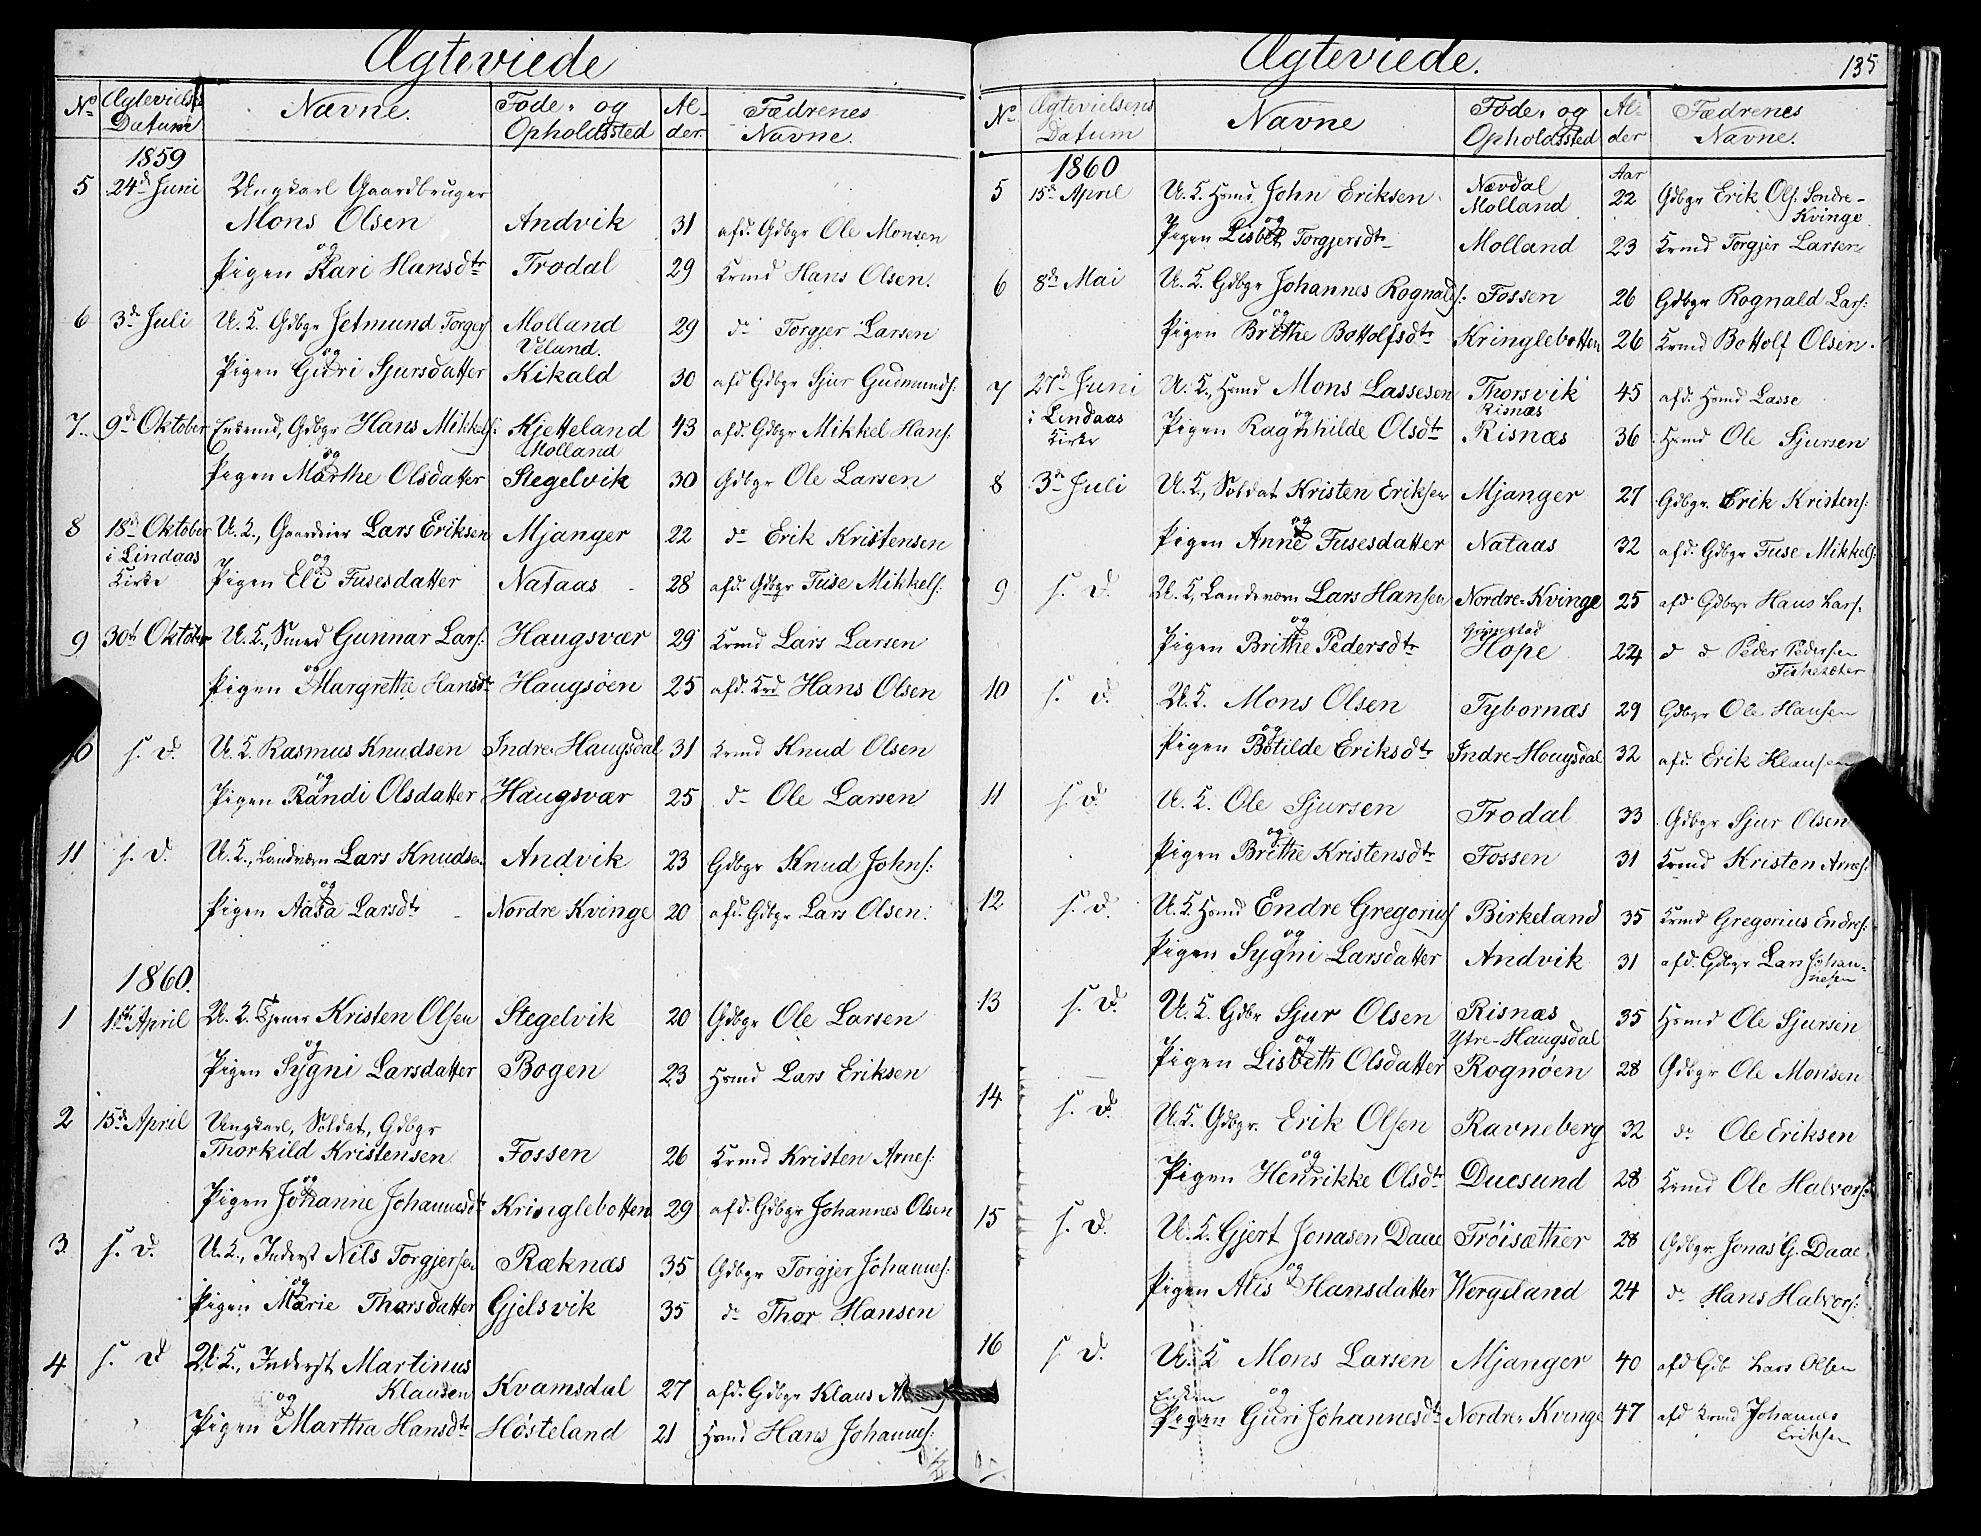 Ægteviede
No Ægtevielses Datum Navne. Føde- og Opholdssted Al-der. Fædrenes Navne.
1859
5 24de Juni Ungkarl Gaardbruger
Mons Olsen Andvik 31 afd. Gdbgr Ole Monsen
og
Pigen Kari Hansdtr Trodal 29 Krmd Hans Olsen.
6 3de Juli U. K. Gdbgr Jetmund Torgers Molland 29 do Torgjer Larsen
Veland.
og
Pigen Guri Sjursdatter Kikald 30 afd Gdbgr Sjur Gudmunds:
7 9de Oktober Enkemd, Gdbgr Hans Mikkels: Kjetteland 43 afd. Gdbgr Mikkel Hans:
Molland
og
Pigen Marthe Olsdatter Stegelvik 30 Gdbgr Ole Larsen
8 18de Oktober U. K., Gaardeier Lars Eriksen Mjanger 22 do Erik Kristensen
i Lindaas
og
Kirke Pigen Eli Fusesdatter Nataas 28 afd. Gdbgr Fuse Mikkels:
9 30te Oktober U. K., Smed Gunnar Lars: Haugsvær 29 Krmd Lars Larsen
og
Pigen Margrethe Hansdtr Haugsøen 25 afd. Krd Hans Olsen
10 s. D. U. K. Rasmus Knudsen Indre-Haugsdal 31 Krmd Knud Olsen
og
Pigen Randi Olsdatter Haugsvær 25 do Ole Larsen
11 s. D. U. K., Landværn Lars Knudsen Andvik 23 Gdbgr Knud Johns:
og
Pigen Aasa Larsdtr Nordre Kvinge 20 afd. Gdbgr Lars Olsen.
1860.
1 1ste April U. K. Tjener Kristen Olsen Stegelvik 20 Gdbgr Ole Larsen
og
Pigen Sygni Larsdatter Bogen 23 Hsmd Lars Eriksen
2 15de April Ungkarl, Soldat, Gdbgr
Thorkild Kristensen Fossen 26 Krmd Kristen Arnes:
og
Pigen Johanne Johannesdtr Kringlebotten 29 afd. Gdbgr Johannes Olsen
3 s. D. U. K., Inderst Nils Torgjersen Ræknæs 35 Gdbgr Torgjer Johannes:
og
Pigen Marie Thorsdatter Gjelsvik 35 do Thor Hansen
4 s. D U. K., Inderst Martinus
Klausen Kvamsdal 27 afd. Gdbgr Klaus
og
Pigen Martha Hansdtr Høsteland 21 Hsmd Hans Johannes:
Ægteviede. 135
No Ægtevielsens Datum Navne Føde- og Opholdssted Al-der Fædrenes Navne.
1860 Aar
5 15de April U. K. Hsmd John Eriksen Nævdal 22 Gdbgr Erik Ols: Søndre-
Molland Kvinge
og
Pigen Lisbet Torgjersdtr Molland 23 Krmd Torgjer Larsen
6 8de Mai U. K. Gdbgr Johannes Rognalds: Fossen 26 Gdbgr Rognald Lars:
og
Pigen Brithe Bottolfsdtr Kringlebotten 26 Krmd Bottolf Olsen.
7 27de Juni U. K., Hsmd Mons Lassesen Thorsvik 45 afd. Hsmd Lasse
i Lindaas Risnæs
og
Kirke Pigen Ragnhilde Olsdtr Risnæs 36 Hsmd Ole Sjursen
8 3de Juli U. K., Soldat Kristen Eriksen Mjanger 27 Gdbgr. Erik Kristens:
og
Pigen Anne Fusesdatter Nataas 32 afd. Gdbgr Fuse Mikkels:
9 s. D. U. K, Landværn Lars Hansen Nordre-Kvinge 25 afd Gdbgr Hans Lars:
og Grimstad
Pigen Brithe Pedersdtr Hope 24 d d Peder Pedersen
Fiskesæter
10 s. D. U. K. Mons Olsen Tybornæs 29 Gdbgr Ole Hansen
og
Pigen Botilde Eriksdtr Indre-Hougsdal 32 afd. Erik Klausen
11 s. D. U. K. Ole Sjursen Trodal 33 Gdbgr Sjur Olsen
og
Pigen Brithe Kristensdtr Fossen 31 Krmd Kristen Arnes:
12 s. D. U. K. Hsmd Endre Gregorius Birkeland 35 Krmd Gregorius Endres:
og
Pigen Sygni Larsdatter Andvik 31 afd. Gdbgr Lars Johan-
nesen
13 s. D. U. K. Gdbr Sjur Olsen Risnæs 35 Hsmd Ole Sjursen
Ytre-Haugsdal
og
Pigen Lisbeth Olsdatter Rognøen 28 Gdbgr Ole Monsen
14 s. D. U. K. Gdbgr. Erik Olsen Ravneberg 32 do Ole Eriksen
og
Pigen Henrikke Olsdtr Duesund 28 Krmd Ole Halvors:
15 s. D. U. K. Gjert Jonasen Daae Frøisæther 28 Gdbgr. Jonas G. Daae
og
Pigen Alis Hansdatter Hergeland 24 do Hans Halvors:
16 s D. U. K Mons Larsen Mjanger 40 afd Gdb Lars Olsen
Enken og
Pigen Guri Johannesdtr Nordre Kvinge 47 afd Krmd Johannes
Eriksen